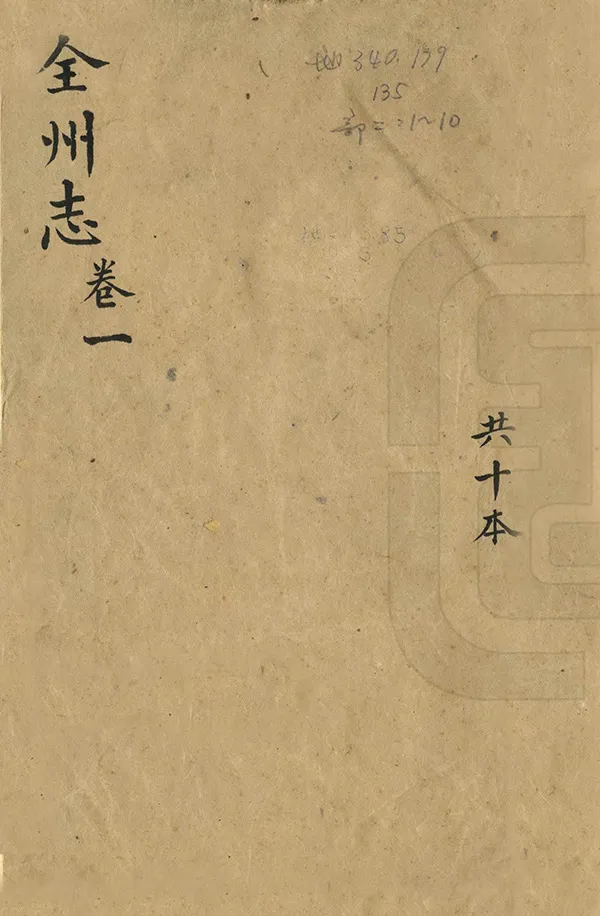 全州志
卷一
地340.179
135
部二:1~10
85
共十本